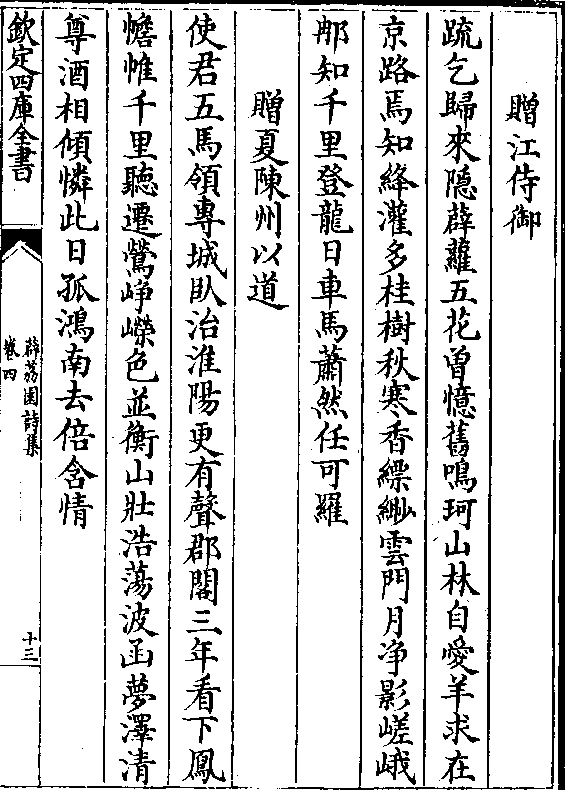 贈江侍御
疏乞歸來隱薜蘿五花曾憶舊鳴珂山林自愛羊求在
京路焉知絳灌多桂樹秋寒香縹緲雲門月净影嵯峨
那知千里登龍日車馬蕭然任可羅
贈夏陳州以道
使君五馬領專城臥治淮陽更有聲郡閣三年看下鳳
幨帷千里聽遷鶯崢嶸色並衡山壯浩蕩波函夢澤清
尊酒相傾憐此日孤鴻南去倍含情
欽定四庫全書
薜荔園詩集
卷四
十三